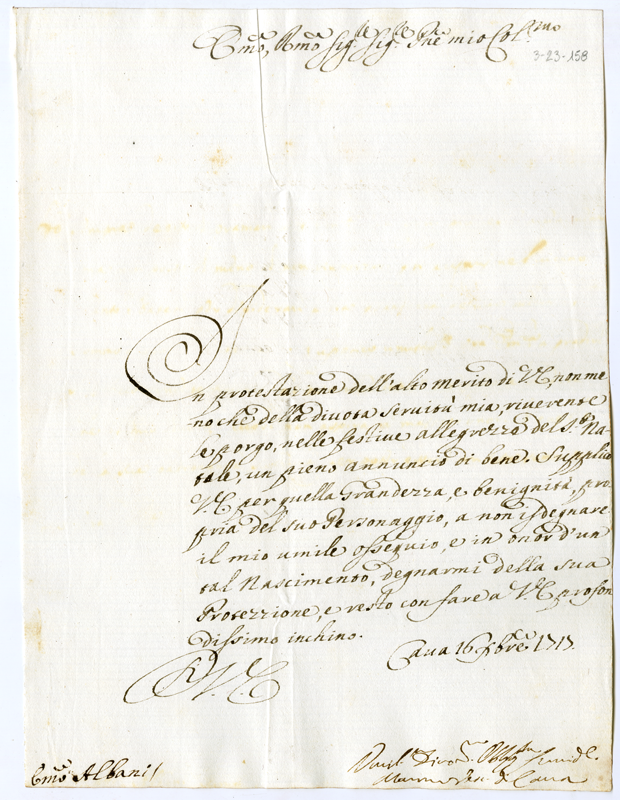 Em̃o, e Rm̃o Sig.re Sig.re Pñe mio Col.mo
3-23-158
In protestazione dell'alto merito di V.E. non me
no che della divota servitù mia, riverente
le porgo, nelle festive allegrezze del S.to Na-
tale, un pieno annuncio di bene. Supplico
V.E. per quella Grandezza, e benignità, pro-
pria del suo Personaggio, a non isdegnare
il mio umile ossequio, e in onor d'un
tal Nascimento, degnarmi della sua
Protezzione, e resto con fare a V.E. profon
dissimo inchino.
Cava 16 Xbre 1717.
V.E.
Em̃o Albani
Umil.e Divo.mo Obb.mo Servid.e
di Cava